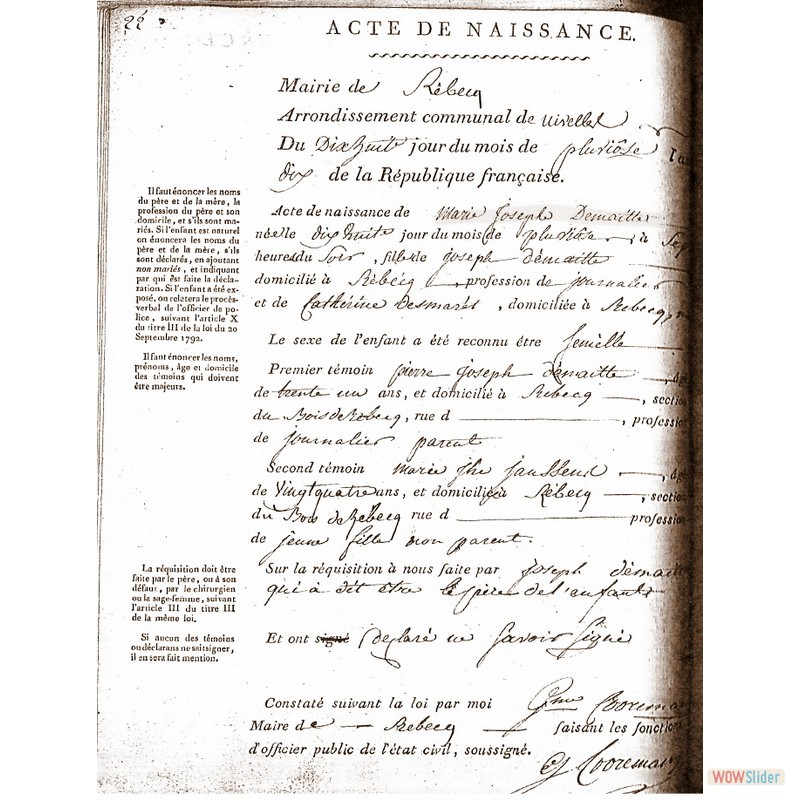 22
ACTE DE NAISSANCE.
Mairie de Rébecq
Arrondissement communal de nivelles
Du Dixhuit jour du mois de pluviôse l'an
dix de la République française.
Il faut énoncer les noms
du père et de la mère, la
profession du père et son
domicile, et s'ils sont ma-
riés. Si l'enfant est naturel
on énoncera les noms du
père et de la mère, s'ils
sont déclarés, en ajoutant
non mariés, et indiquant
par qui est faite la décla-
ration. Si l'enfant a été ex-
posé, on relatera le procès-
verbal de l'officier de po-
lice, suivant l'article X
du titre III de la loi du 20
Septembre 1792.
Il faut énoncer les noms,
prénoms, âge et domicile
des témoins qui doivent
être majeurs.
Acte de naissance de Marie Joseph Demaitte
née le dixhuit jour du mois de pluviôse à Sep
heures du Soir, fille de joseph demaitte
domicilié à Rebecq, profession de journalier
et de Catherine Desmaret, domiciliée à Rebecq,
Le sexe de l'enfant a été reconnu être femelle
Premier témoin pierre joseph demaitte, âg
de trente un ans, et domicilié à Rebecq, section
du Bois de Rebecq, rue d, profession
de journalier parent
Second témoin marie jhe janssens, âg
de Vingt quatre ans, et domicilié à Rébecq, section
du Bois de Rebecq rue d profession
de jeune fille non parent.
La réquisition doit être
faite par le père, ou à son
défaut, par le chirurgien
ou la sage-femme, suivant
l'article III du titre III
de la même loi.
Si aucun des témoins
ou déclarans ne sait signer,
il en sera fait mention.
Sur la réquisition à nous faite par joseph démaitt
qui à dit être le père de l'enfant
Et ont signé declaré ne savoir signé
Constaté suivant la loi par moi
Maire de Rebecq faisant les fonctions
d'officier public de l'état civil, soussigné.
WOWSlider